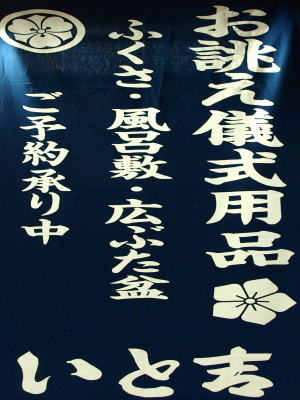 お誂え儀式用品
ふくさ・風呂敷・広ぶた盆
ご予約承り中
いと吉